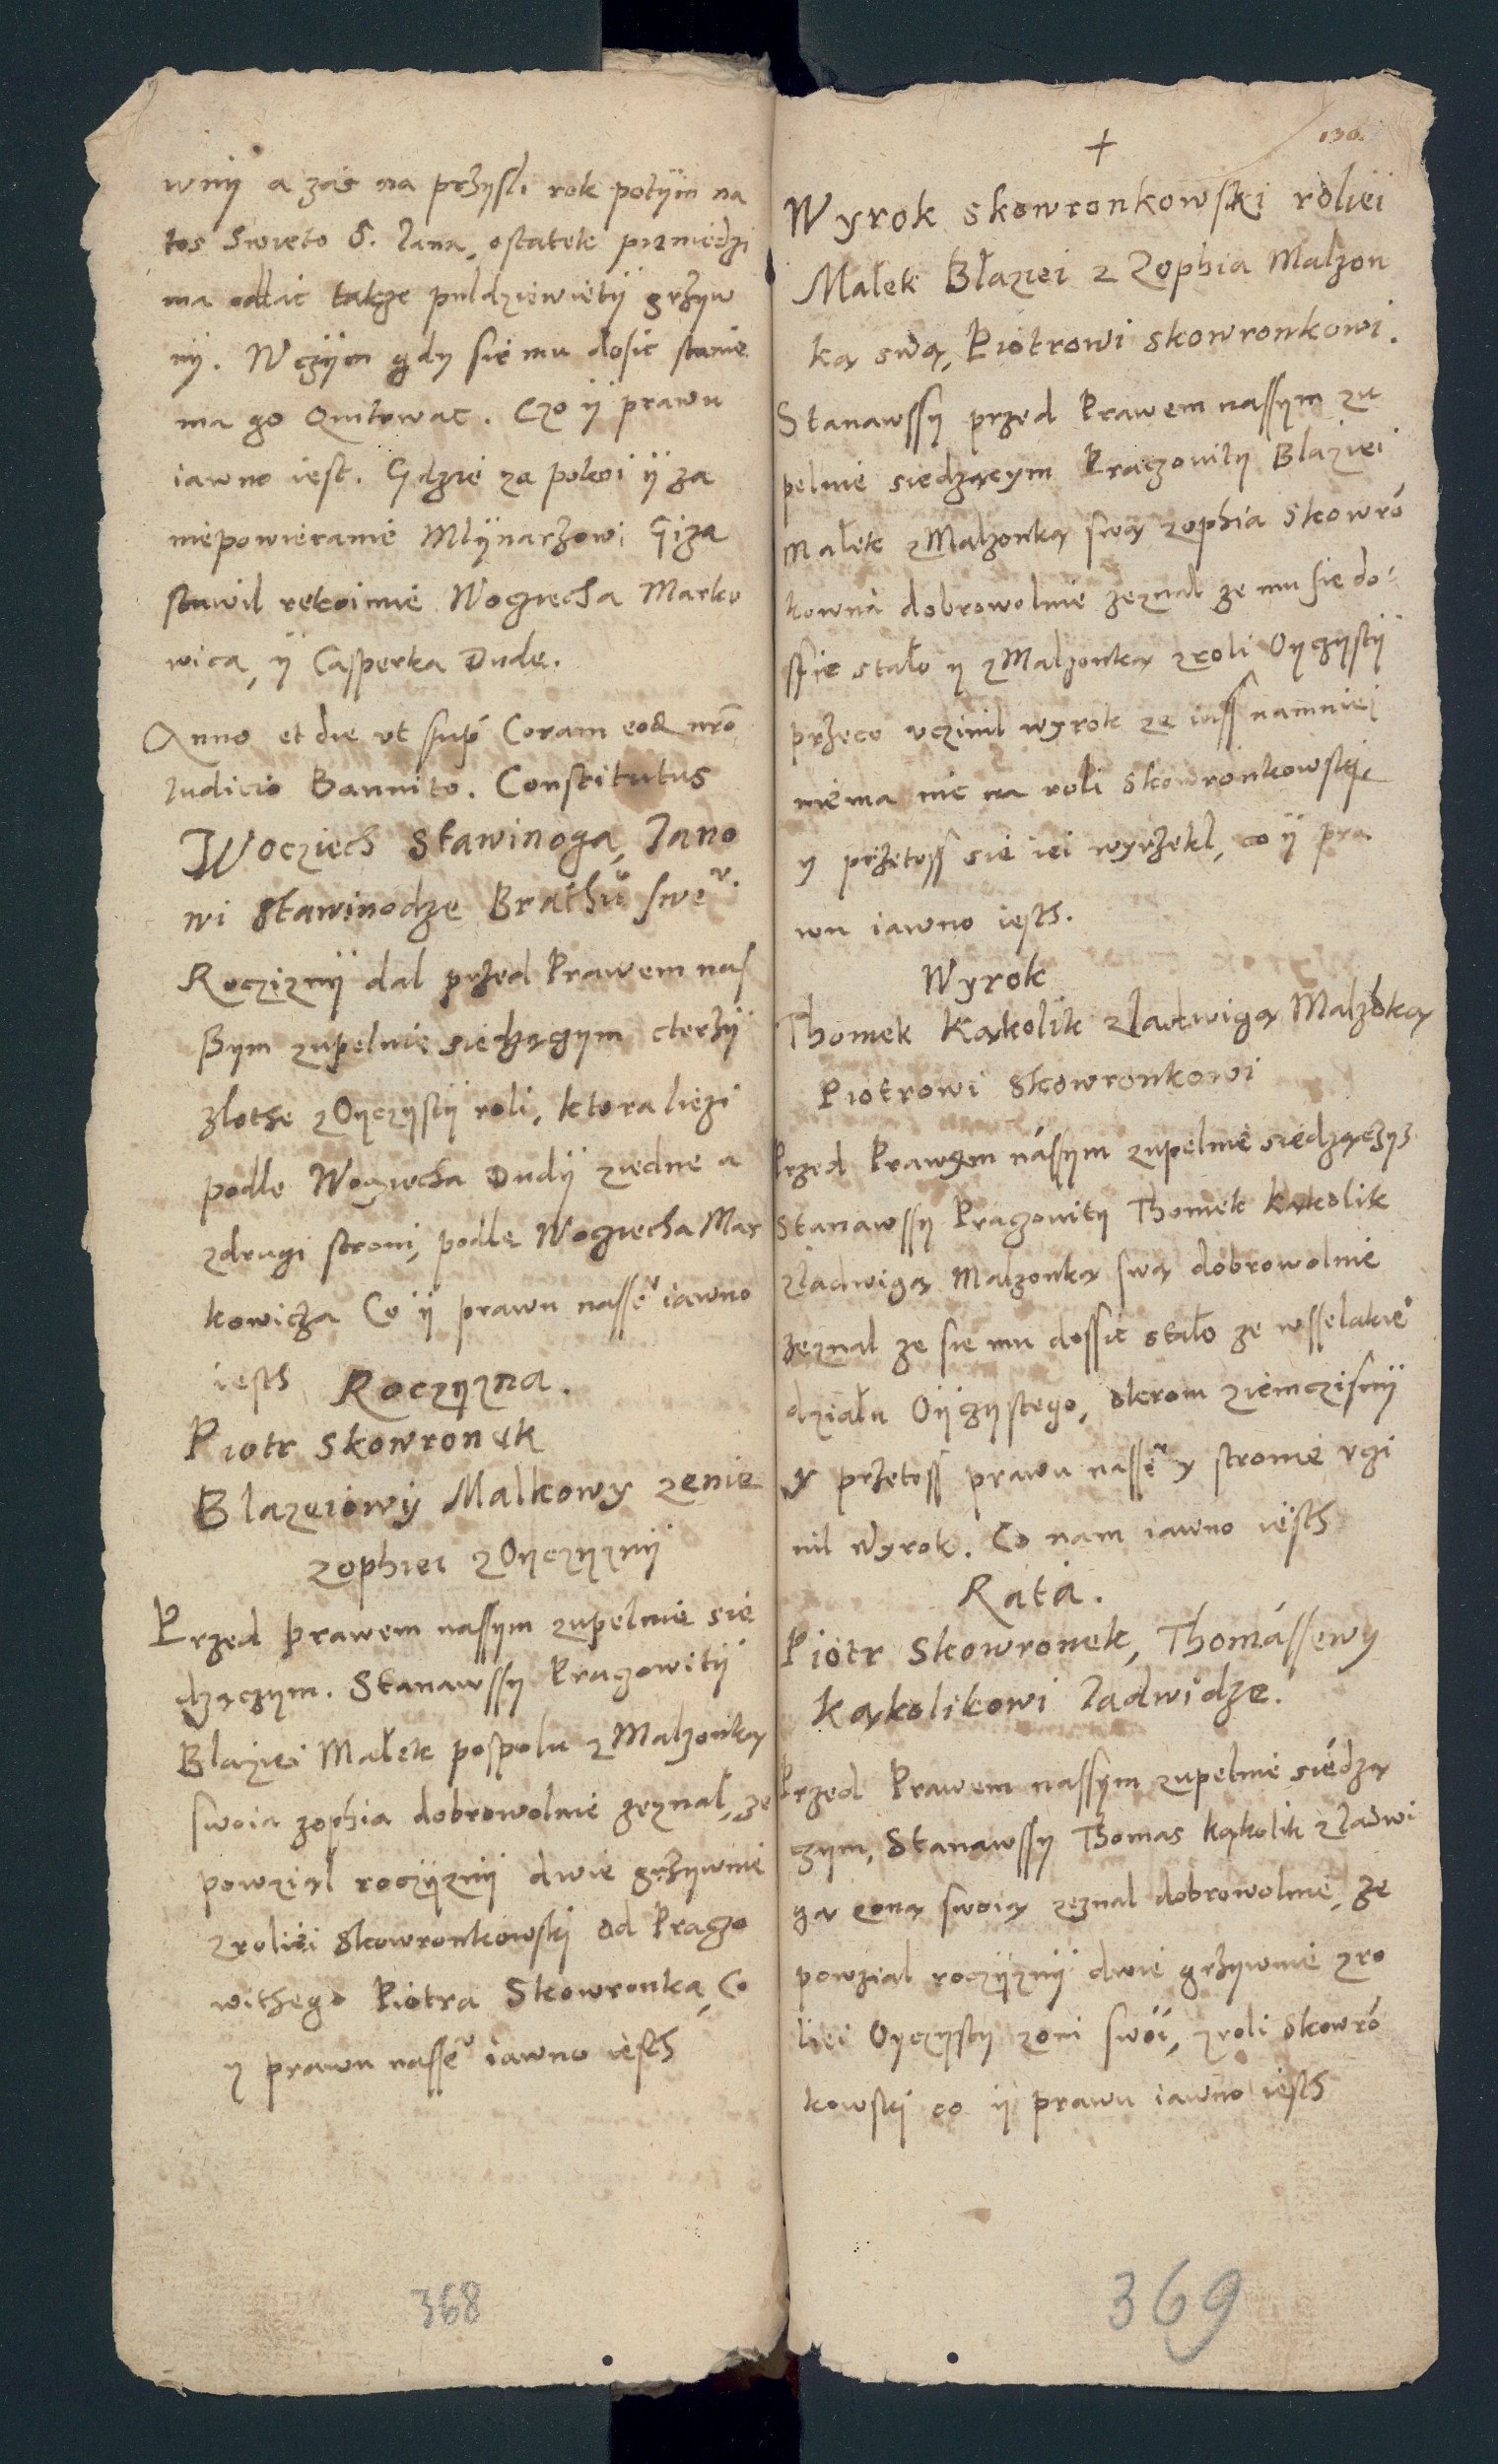 wnÿ a zas na przysł. rok potÿm na
tos Swieto S. Jana, ostatek pieniedzi
ma oddac takze puldziewietÿ grzÿw
nÿ. W czÿm gdy sie mu dosic stanie
ma go Quitowac. Czo ÿ prawu
iawno iest. Gdzie za pokoi ÿ za
niepowieranie Mlÿnarzowi
stawil rekoimie Wogciecha Marko
wica, ÿ Casperka Dude.
Anno et die ut sup Coram eod nro
Iudicio Bannito. Constitutus
Wocziech Stawinoga, Jano
wi Stawinodze Brathu swe
Roczÿznÿ dal przed Prawem nas
szym zupelnie siedzączym cterzÿ
zlothe z Oÿczÿstÿ roli, ktora liezi
podle Wogciecha Dudÿ z iedne a
z drugi stroni, podle Wogciecha Mar
kowicza Co ÿ prawu nasse iawno
iesth Roczÿzna.
Piotr Skowronek
Blazeiowÿ Malkowy zenie
Zophiei z Oÿczÿznÿ
Przed prawem nassym zupelnie sie
dzączym. Stanawssy Praczowitÿ
Blaziei Małek pospolu z Malzonką
swoia zophia dobrowolnie zeznał, ze
powziąl roczÿznÿ dwie grzywnie
z roliei Skowronkowski od Praczo
withego Piotra Skowronka, Co
y prawu nasse iawno iesth
368
130.
+
Wyrok skowronkowski roliei
Małek Błaziei z Zophia Malzon
ką swą, Piotrowi Skowronkowi.
Stanawssy przed Prawem nassym zu
pelnie siedzącym Praczowitÿ Blaziei
Małek z Malzonką swą zophia Skowró
kowna dobrowolnie zeznal ze mu sie do
ssic stało y z Malzonką z roli Oÿczÿstÿ
przeco uczinil wyrok ze iuss namniei
niema nic na roli Skowronkowskiei
y przetoss sie iei wyrzekl, co ÿ pra
wu iawno iesth.
Wyrok
Thomek Kąkolik z Jadwigą Malzoką
Piotrowi Skowronkowi
Przed Prawem nassym zupelnie siedzączÿ
Stanawssy Praczovitÿ Thomek Kąkolik
z Jadwigą Malzonką swą dobrowolnie
zeznal ze sie mu dossic stało ze wsselakie
działu Oÿczÿstego, ziemczisnÿ
y przetoss prawu nasse y stronie uczi
nil Wyrok. Co nam iawno iesth
Rata.
Piotr Skowronek, Thomassewy
Kąkolikowi Jadwidze.
Przed Prawem nassym zupelnie siedzą
czym, Stanawssy Thomas Kąkolik z Jadwi
gą zoną swoią zeznal dobrowolnie, ze
powzial roczÿznÿ dwie grzywnie z ro
liei Oyczysty zoni swoi, z roli Skowró
kowski co ÿ prawu iawno iesth
369